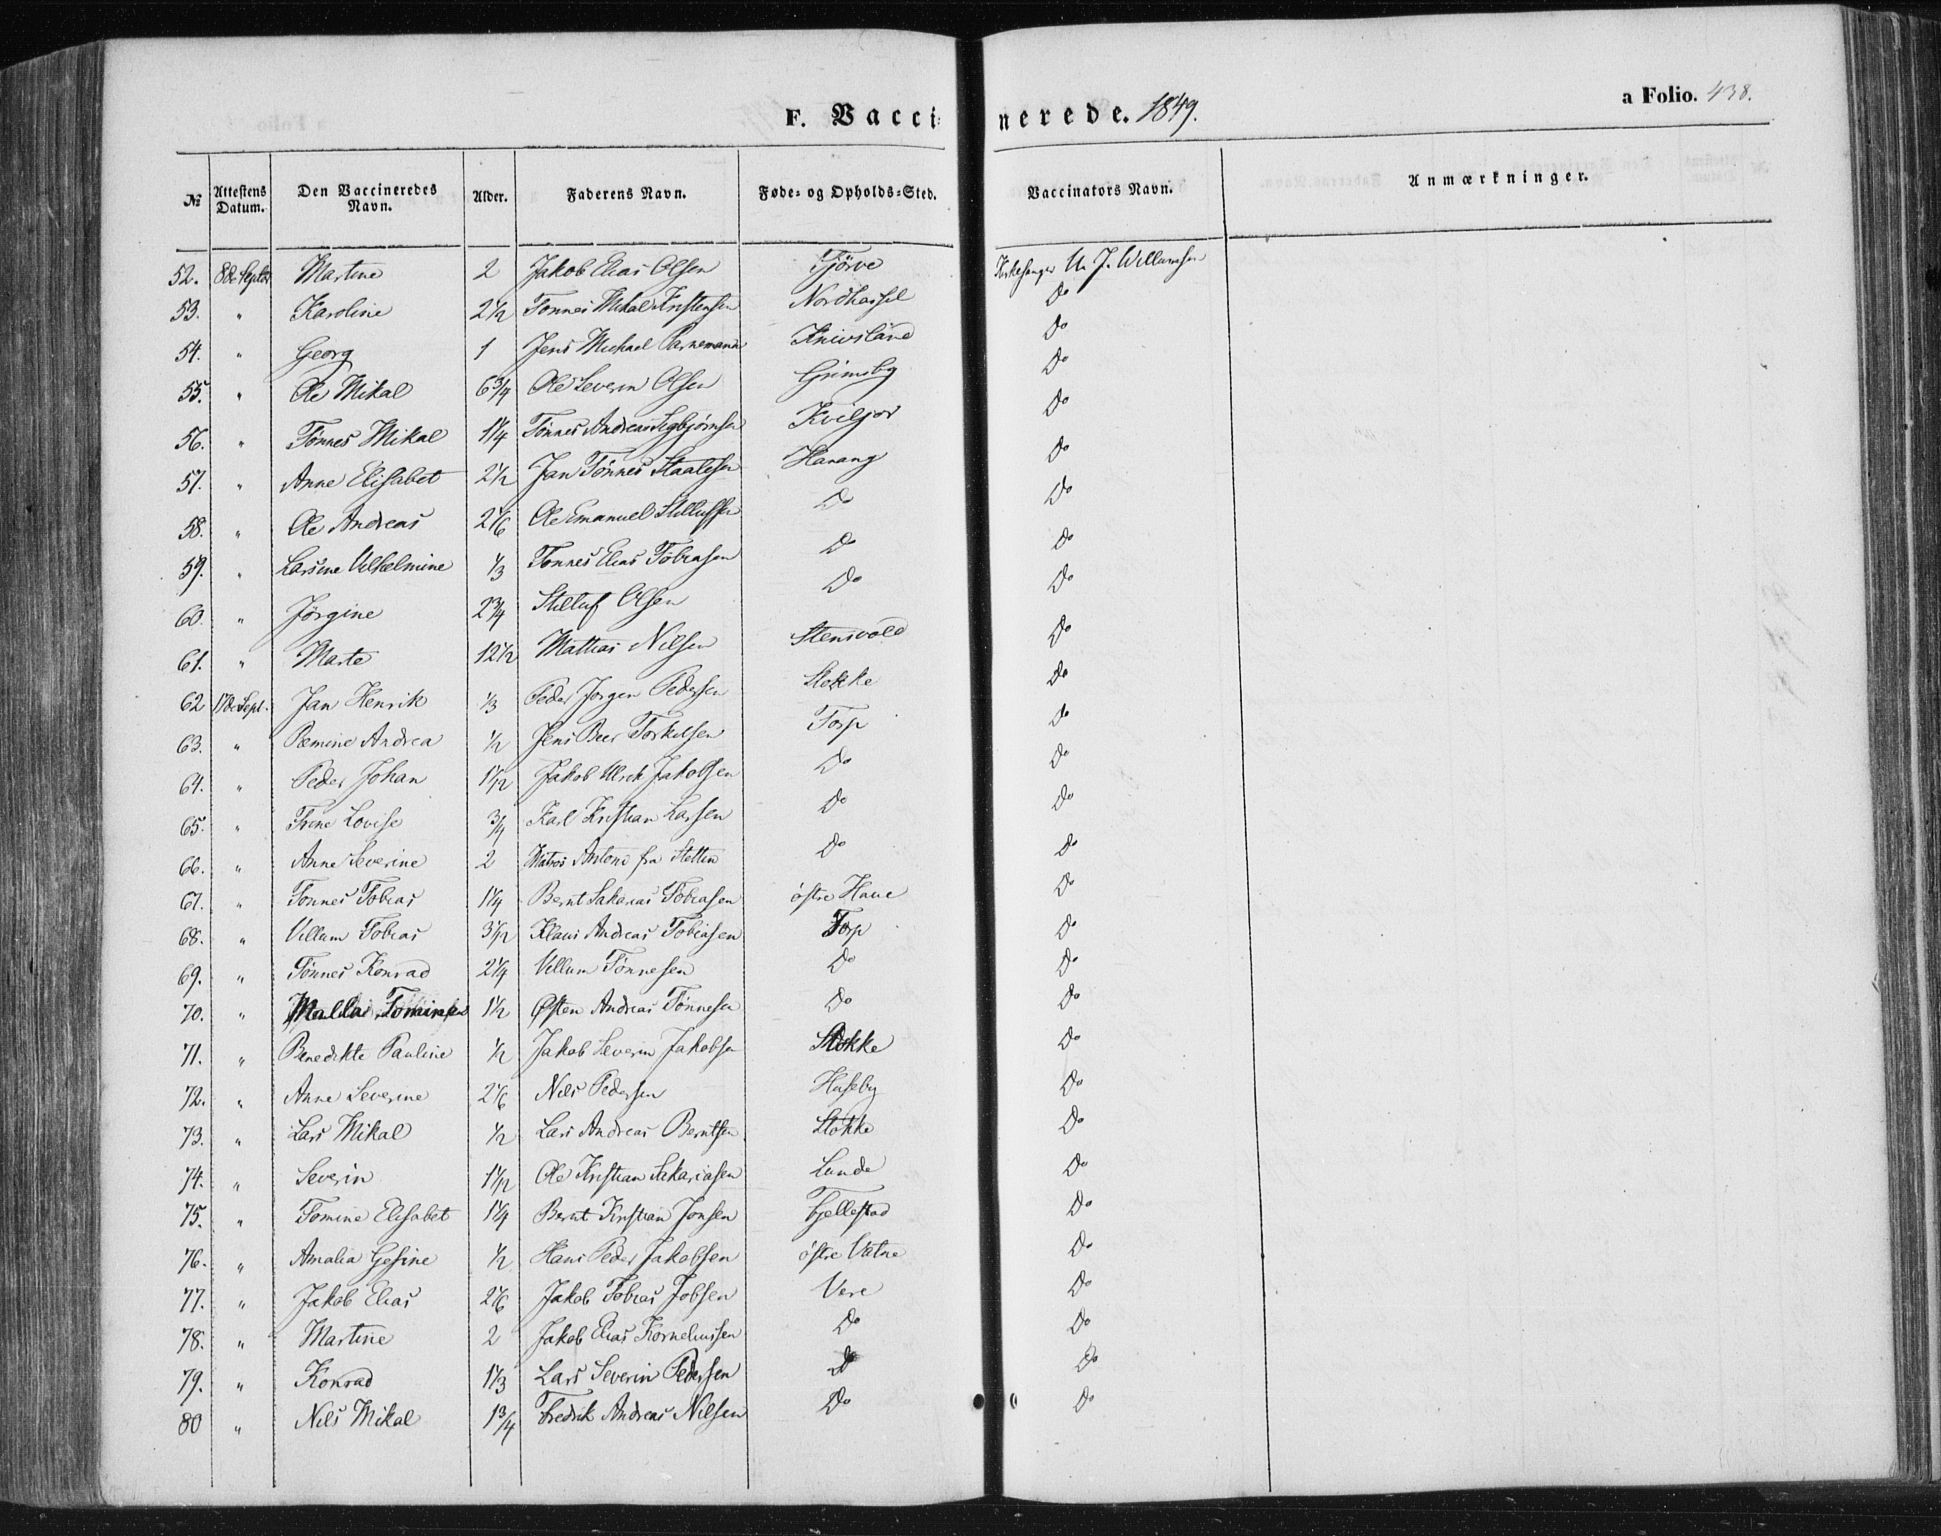 F. Vaccinerede. 1849.
a Folio. 438.
№ Attestens Datum. Den Vaccineredes Navn. Alder. Faderens Navn. Føde- og Opholds-Sted. Vaccinators Navn. Anmærkninger.
52. 8de Septbr Martine 2 Jakob Elias Olsen Tjörve Kirkesanger U. J. Willumsen
53. " Karoline 2 1/2 Tonnes Mikal Kristensen Nordhassel Do
54. " Georg 1 Jens Michael Knivsland Do
55. " Ole Mikal 6 3/4 Ole Severin Olsen Grimsby Do
56. " Tönnes Mikal 1 1/4 Tönnes Andreas Sigbjørnsen Kviljor Do
57. " Anne Elisabet 2 1/2 Jan Tönnes Staalesen Hanang Do
58. " Ole Andreas 2 1/6 Ole Emanuel Stillufsen Do Do
59. " Larsine Vilhelmine 1/3 Tonnes Elias Tobiasen Do Do
60. " Jörgine 2 3/4 Stilluf Olsen Do Do
61. " Marte 12 1/2 Mathias Nilsen Stensvold Do
62 17de Sept. Jan Henrik 1/3 Peder Jorgen Pedersen Stokke Do
63. " Pemine Andrea 1/2 Jens Beer Torkilsen Torp Do
64. " Peder Johan 1 1/2 Jakob Ulrik Jakobsen Do Do
65. " Trine Lovise 3/4 Karl Kristian Larsen Do Do
66. " Anne Severine 2 Matros Antoni fra Stettin Do Do
67. " Tonnes Tobias 1 1/4 Bernt Sakarias Tobiasen östre Haue Do
68. " Villum Tobias 3 1/2 Klaus Andreas Tobiasen Torp Do
69. " Tönnes Konrad 2 1/4 Villum Tönnesen Do Do
70. " 1 1/2 Østen Andreas Tönnesen Do Do
71. " Benedikte Pauline 1/2 Jakob Severin Jakobsen Stokke Do
72. " Anne Severine 2 1/6 Nils Pedersen Huseby Do
73. " Lars Mikal 1/2 Lars Andreas Berntsen Stokke Do
74. " Severin 1 1/2 Ole Kristian Sakariasen Lunde Do
75. " Tomine Elisabet 1 1/4 Bernt Kristian Jonsen Fjellestad Do
76. " Amalia Gesine 1/2 Hans Peder Jakobsen östre Vatne Do
77. " Jakob Elias 2 1/6 Jakob Tobias Jobsen Vere Do
78. " Martine 2 Jakob Elias Korneliussen Do Do
79. " Konrad 1 1/3 Lars Severin Pedersen Do Do
80 " Nils Mikal 1 3/4 Fredrik Andreas Nilsen Do Do